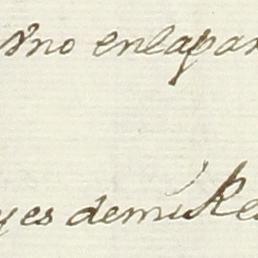 no enlapar
yes demi Re